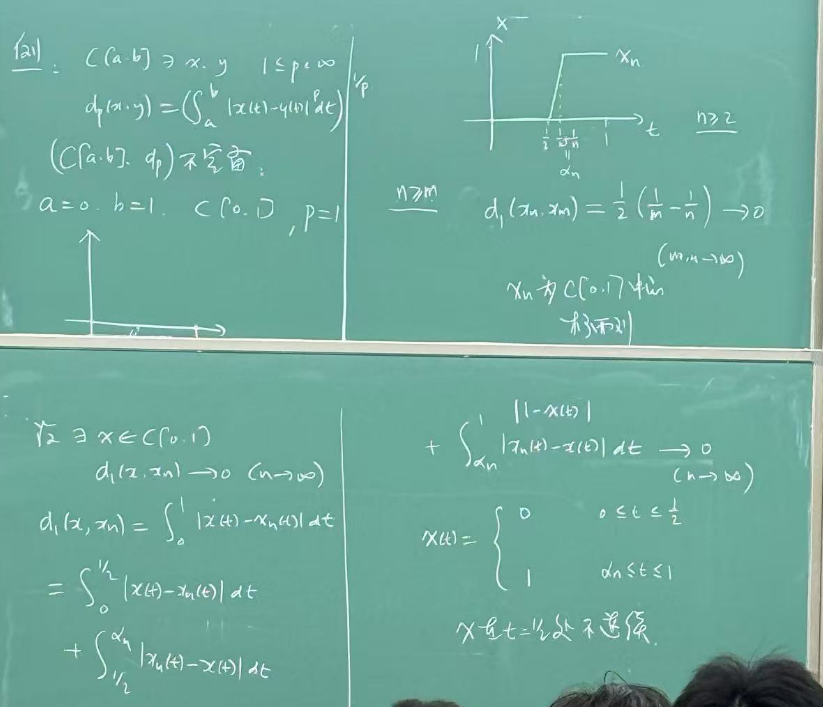 例: C[a.b] ∋ x.y 1≤p<∞
dp(x.y) = (∫_a^b |x(t)-y(t)|^p dt)^{1/p}
(C[a.b]. dp) 不完备.
a=0. b=1. C[0.1], p=1
x
1
xn
1/2 1/2+1/n 1 t
||
αn
n≥2
n≥m
d1(xn.xm) = 1/2 (1/m - 1/n) → 0
(m,n→∞)
xn为C[0.1]中的
柯西列
设 ∃ x∈C[0.1]
d1(x.xn) → 0 (n→∞)
d1(x,xn) = ∫_0^1 |x(t)-xn(t)| dt
= ∫_0^{1/2} |x(t)-xn(t)| dt
+ ∫_{1/2}^{αn} |xn(t)-x(t)| dt
|1-x(t)|
+ ∫_{αn}^1 |xn(t)-x(t)| dt → 0
(n→∞)
x(t) = { 0 0≤t≤1/2
1 αn≤t≤1
x在t=1/2处不连续.